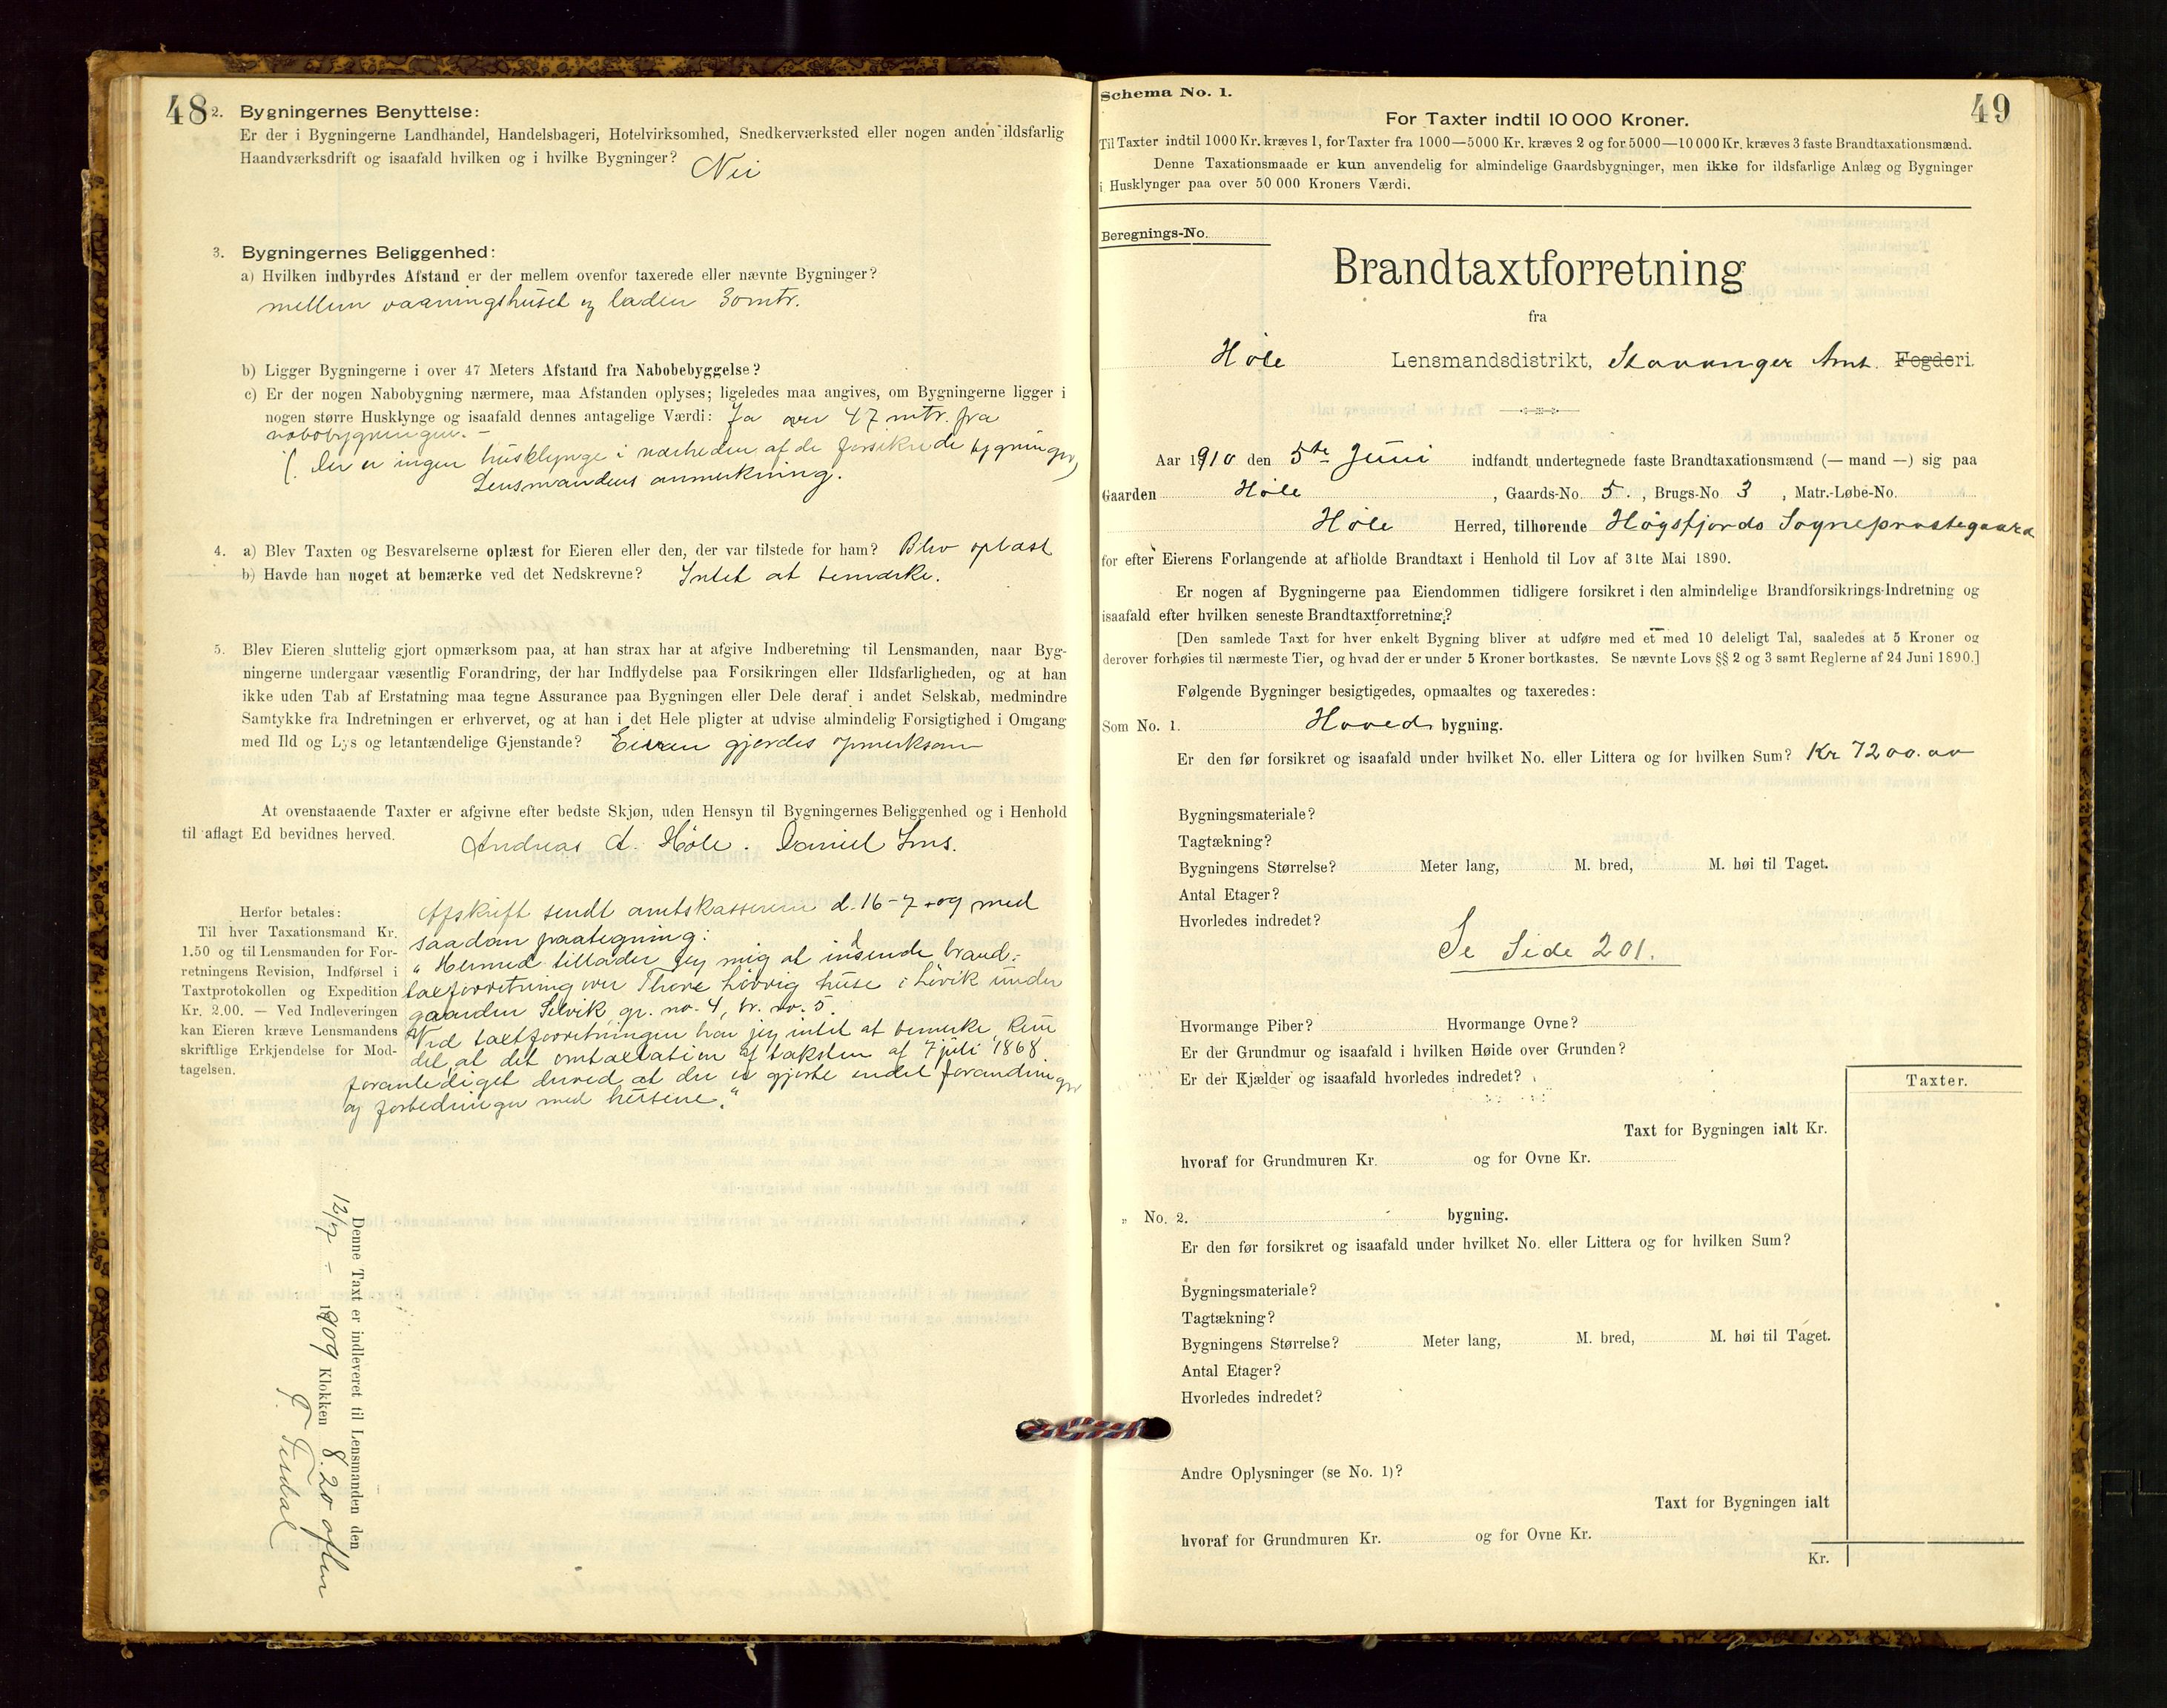 48
2. Bygningernes Benyttelse:
Er der i Bygningerne Landhandel, Handelsbageri, Hotelvirksomhed, Snedkerværksted eller nogen anden ildsfarlig
Haandværksdrift og isaafald hvilken og i hvilke Bygninger? Nei
3. Bygningernes Beliggenhed:
a) Hvilken indbyrdes Afstand er der mellem ovenfor taxerede eller nævnte Bygninger?
mellem vaaningshuset og laden 30 mtr.
b) Ligger Bygningerne i over 47 Meters Afstand fra Nabobebyggelse?
c) Er der nogen Nabobygning nærmere, maa Afstanden oplyses; ligeledes maa angives, om Bygningerne ligger i
nogen større Husklynge og isaafald dennes antagelige Værdi: Ja over 47 mtr. fra
nabobygningen. -
(Der er ingen husklynge i nærheden af de forsikrede bygninger)
Lensmandens anmerkning.
4. a) Blev Taxten og Besvarelserne oplæst for Eieren eller den, der var tilstede for ham? Blev oplæst
b) Havde han noget at bemærke ved det Nedskrevne? Intet at bemærke.
5. Blev Eieren sluttelig gjort opmærksom paa, at han strax har at afgive Indberetning til Lensmanden, naar Byg-
ningerne undergaar væsentlig Forandring, der har Indflydelse paa Forsikringen eller Ildsfarligheden, og at han
ikke uden Tab af Erstatning maa tegne Assurance paa Bygningen eller Dele deraf i andet Selskab, medmindre
Samtykke fra Indretningen er erhvervet, og at han i det Hele pligter at udvise almindelig Forsigtighed i Omgang
med Ild og Lys og letantændelige Gjenstande? Eieren gjordes opmerksom
At ovenstaaende Taxter er afgivne efter bedste Skjøn, uden Hensyn til Bygningernes Beliggenhed og i Henhold
til aflagt Ed bevidnes herved.
Andreas A. Høle. Daniel Ims.
Herfor betales:
Til hver Taxationsmand Kr.
1.50 og til Lensmanden for For-
retningens Revision, Indførsel i
Taxtprotokollen og Expedition
Kr. 2.00. — Ved Indleveringen
kan Eieren kræve Lensmandens
skriftlige Erkjendelse for Mod-
tagelsen.
Afskrift sendt amtskassereren d. 16-7-09 med
saadan paategning:
"Hermed tillader jeg mig at indsende brand-
taxtforretning over Thore Løvvig huse i Løvik under
gaarden Selvik, gr. no. 4, br. no. 5.
Ved taxtforretningen har jeg intet at bemerke. Kun
det, at det omtaxation af taksten af 7 juli 1868
foranlediget derved at der er gjorte endel forandringer
og forbedringer med husene."
Denne Taxt er indleveret til Lensmanden den
12/7 - 1909 Klokken 8.20 aften
T. Tisdal
Schema No. 1.
49
For Taxter indtil 10 000 Kroner.
Til Taxter indtil 1000 Kr. kræves 1, for Taxter fra 1000—5000 Kr. kræves 2 og for 5000—10 000 Kr. kræves 3 faste Brandtaxationsmænd.
Denne Taxationsmaade er kun anvendelig for almindelige Gaardsbygninger, men ikke for ildsfarlige Anlæg og Bygninger
i Husklynger paa over 50 000 Kroners Værdi.
Beregnings-No.
Brandtaxtforretning
fra
Høle Lensmandsdistrikt, Stavanger Amt. Fogderi.
Aar 1910 den 5te Juni indfandt undertegnede faste Brandtaxationsmænd (— mand —) sig paa
Gaarden Høle, Gaards-No. 5., Brugs-No 3, Matr.-Løbe-No.
Høle Herred, tilhørende Høgsfjords Sognepræstegaard
for efter Eierens Forlangende at afholde Brandtaxt i Henhold til Lov af 31te Mai 1890.
Er nogen af Bygningerne paa Eiendommen tidligere forsikret i den almindelige Brandforsikrings-Indretning og
isaafald efter hvilken seneste Brandtaxtforretning?
[Den samlede Taxt for hver enkelt Bygning bliver at udføre med et med 10 deleligt Tal, saaledes at 5 Kroner og
derover forhøies til nærmeste Tier, og hvad der er under 5 Kroner bortkastes. Se nævnte Lovs §§ 2 og 3 samt Reglerne af 24 Juni 1890.]
Følgende Bygninger besigtigedes, opmaaltes og taxeredes:
Som No. 1. Hoved bygning.
Er den før forsikret og isaafald under hvilket No. eller Littera og for hvilken Sum? Kr 7200.00
Bygningsmateriale?
Tagtækning?
Bygningens Størrelse? Meter lang, M. bred, M. høi til Taget.
Antal Etager?
Hvorledes indredet?
Se Side 201.
Hvormange Piber? Hvormange Ovne?
Er der Grundmur og isaafald i hvilken Høide over Grunden?
Er der Kjælder og isaafald hvorledes indredet?
Taxter.
Taxt for Bygningen ialt Kr.
hvoraf for Grundmuren Kr. og for Ovne Kr.
„ No. 2. bygning.
Er den før forsikret og isaafald under hvilket No. eller Littera og for hvilken Sum?
Bygningsmateriale?
Tagtækning?
Bygningens Størrelse? Meter lang, M. bred, M. høi til Taget.
Antal Etager?
Hvorledes indredet?
Andre Oplysninger (se No. 1)?
Taxt for Bygningen ialt
hvoraf for Grundmuren Kr. og for Ovne Kr.
Kr.